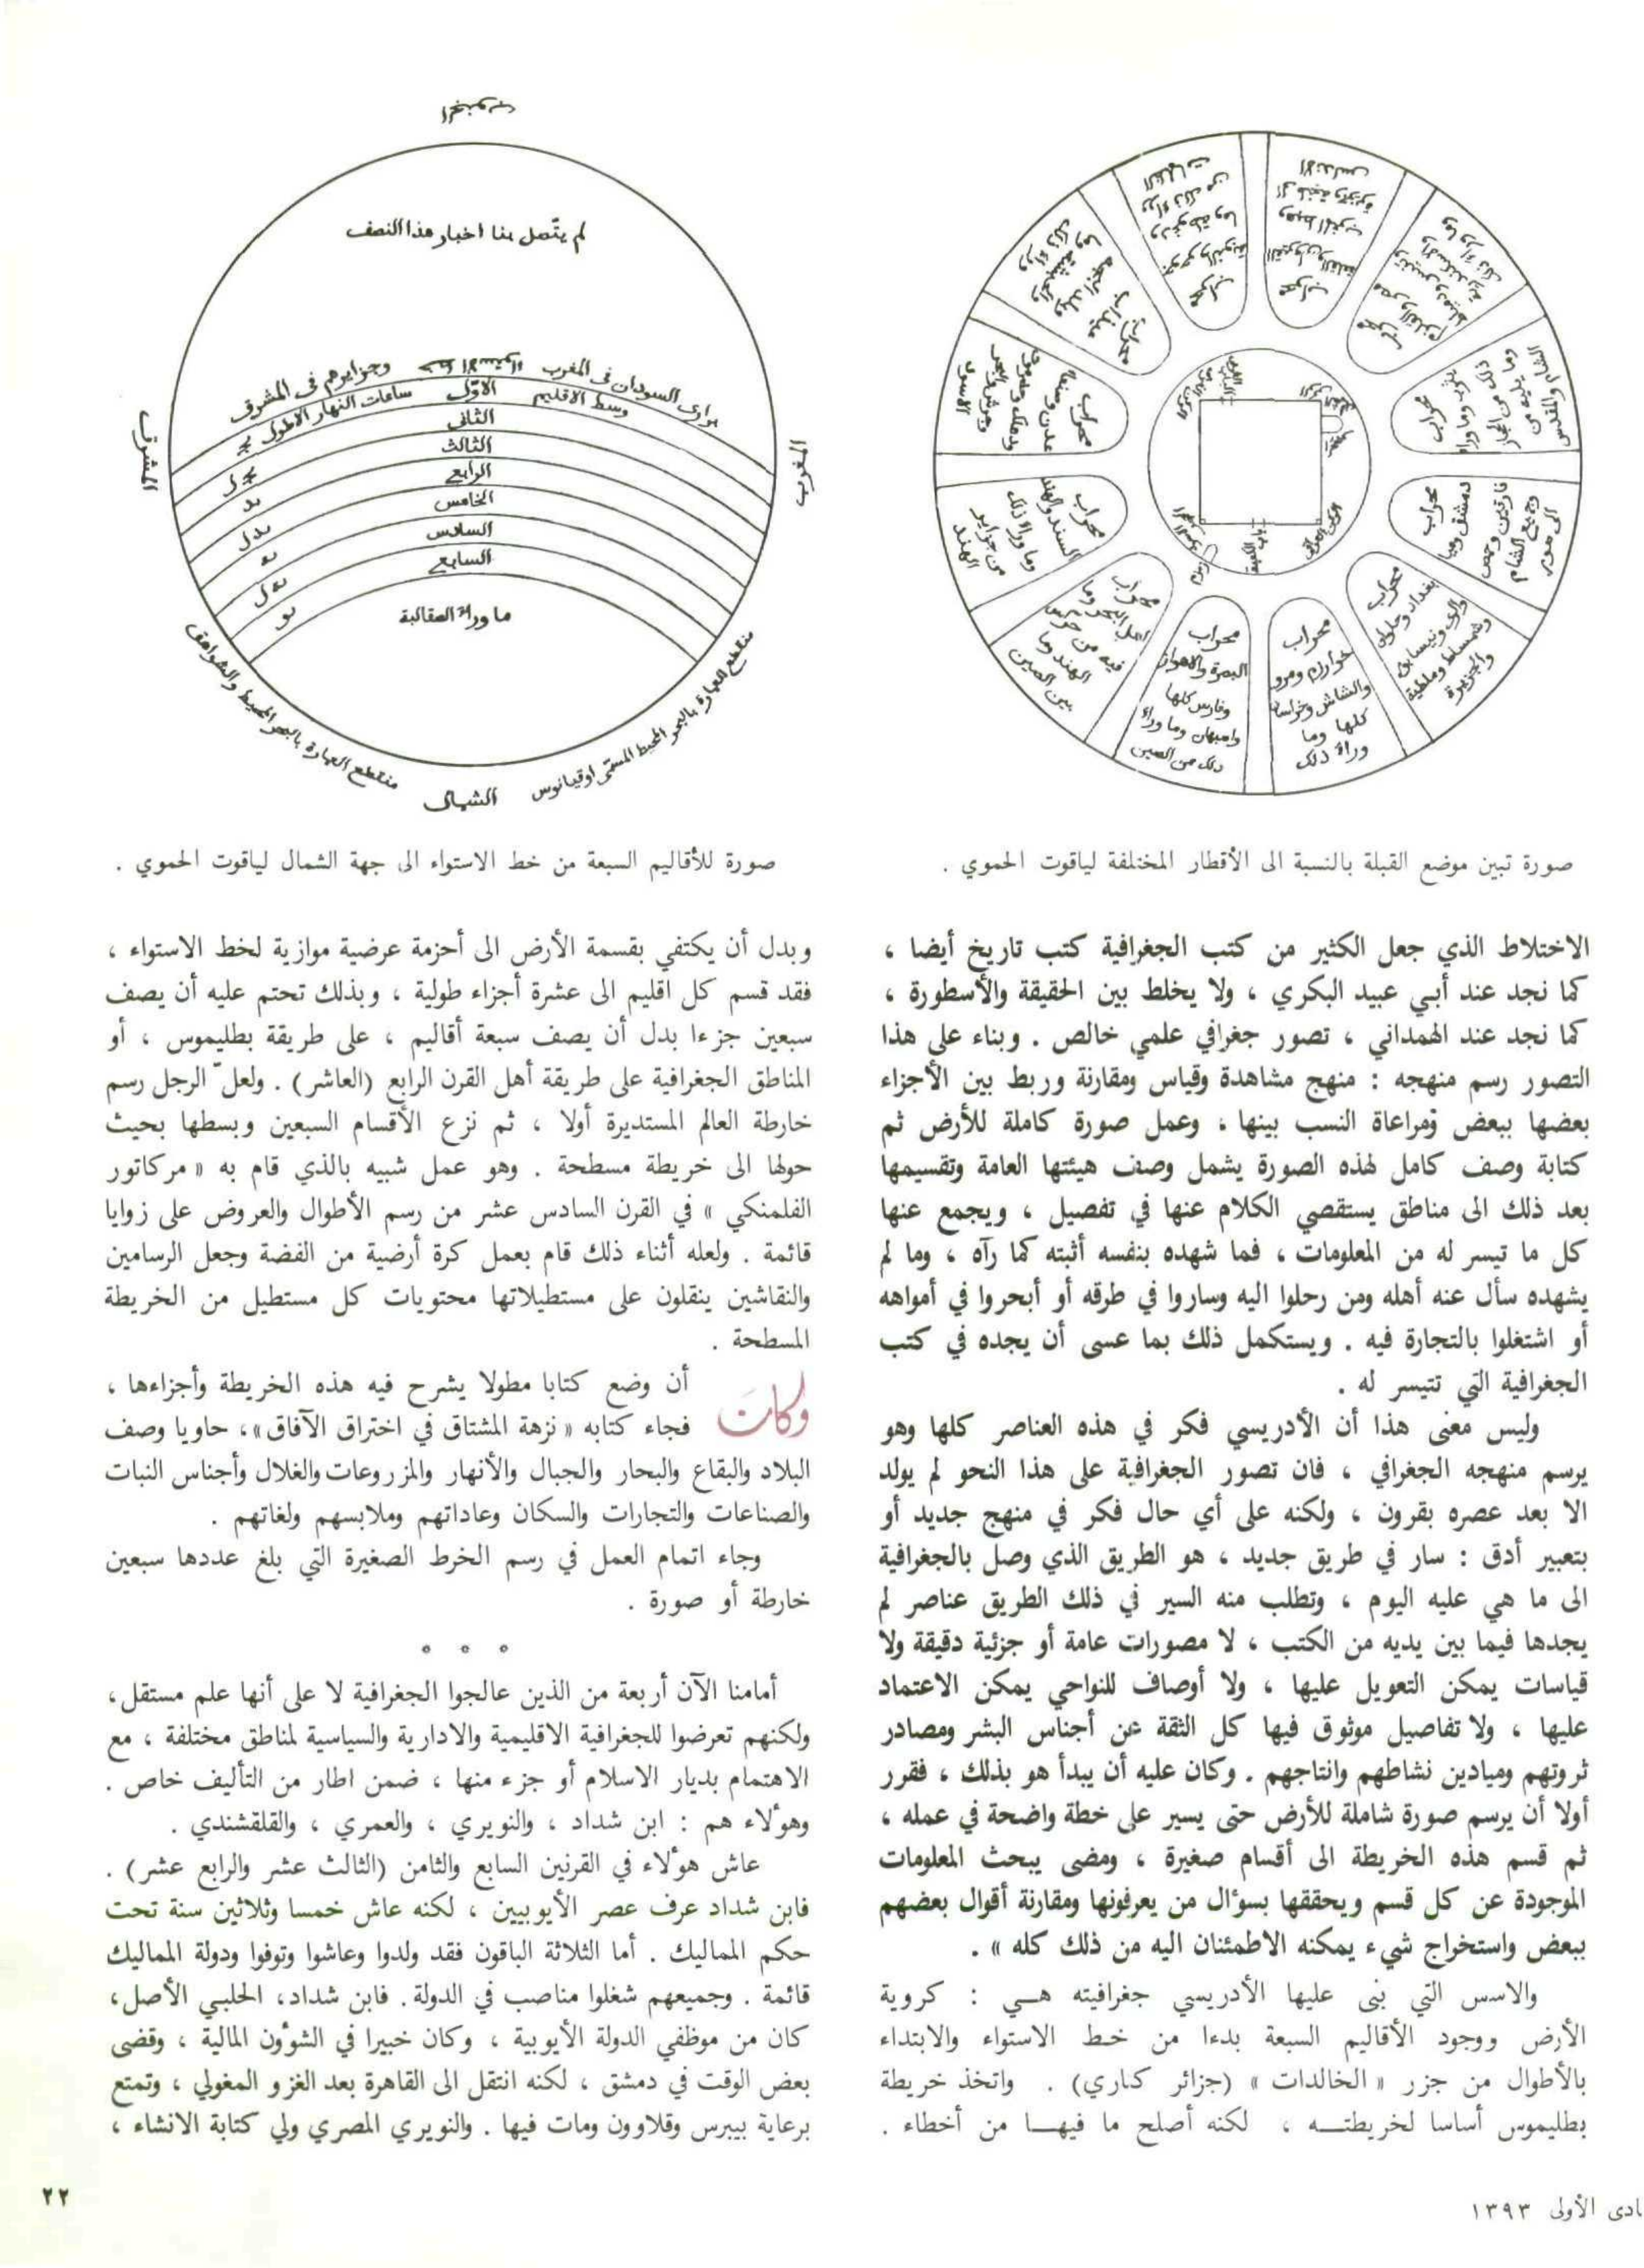 الجنوب
لم يتصل بنا اخبار هذا النصف
برارى السودان فى المغرب خط الاستواء وجزايرهم فى المشرق
وسط الاقليم الاول ساعات النهار الاطول
الثانى
الثالث
الرابع
الخامس
السادس
السابع
ما وراء الصقالبة
المشرق
المغرب
الشمال
منقطع العمارة بالبحر المحيط والشواهق
منقطع العمارة بالبحر المحيط المسمى اوقيانوس
محراب
خوارزم ومرو
والشاش وخراسان
كلها وما
وراء ذلك
محراب
البصرة والاهواز
وفارس كلها
واصبهان وما وراء
ذلك من الصين
محراب
السند والهند
وما وراء ذلك
من جزاير
الهند
صورة تبين موضع القبلة بالنسبة الى الأقطار المختلفة لياقوت الحموي .
صورة للأقاليم السبعة من خط الاستواء الى جهة الشمال لياقوت الحموي .
الاختلاط الذي جعل الكثير من كتب الجغرافية كتب تاريخ أيضا ،
كما نجد عند أبي عبيد البكري ، ولا يخلط بين الحقيقة والأسطورة ،
كما نجد عند الهمداني ، تصور جغرافي علمي خالص . وبناء على هذا
التصور رسم منهجه : منهج مشاهدة وقياس ومقارنة وربط بين الأجزاء
بعضها ببعض ومراعاة النسب بينها ، وعمل صورة كاملة للأرض ثم
كتابة وصف كامل لهذه الصورة يشمل وصف هيئتها العامة وتقسيمها
بعد ذلك الى مناطق يستقصي الكلام عنها في تفصيل ، ويجمع عنها
كل ما تيسر له من المعلومات ، فما شهده بنفسه أثبته كما رآه ، وما لم
يشهده سأل عنه أهله ومن رحلوا اليه وساروا في طرقه أو أبحروا في أمواهه
أو اشتغلوا بالتجارة فيه . ويستكمل ذلك بما عسى أن يجده في كتب
الجغرافية التي تتيسر له .
وليس معنى هذا أن الأدريسي فكر في هذه العناصر كلها وهو
يرسم منهجه الجغرافي ، فان تصور الجغرافية على هذا النحو لم يولد
الا بعد عصره بقرون ، ولكنه على أي حال فكر في منهج جديد أو
بتعبير أدق : سار في طريق جديد ، هو الطريق الذي وصل بالجغرافية
الى ما هي عليه اليوم ، وتطلب منه السير في ذلك الطريق عناصر لم
يجدها فيما بين يديه من الكتب ، لا مصورات عامة أو جزئية دقيقة ولا
قياسات يمكن التعويل عليها ، ولا أوصاف للنواحي يمكن الاعتماد
عليها ، ولا تفاصيل موثوق فيها كل الثقة عن أجناس البشر ومصادر
ثروتهم وميادين نشاطهم وانتاجهم . وكان عليه أن يبدأ هو بذلك ، فقرر
أولا أن يرسم صورة شاملة للأرض حتى يسير على خطة واضحة في عمله ،
ثم قسم هذه الخريطة الى أقسام صغيرة ، ومضى يبحث المعلومات
الموجودة عن كل قسم ويحققها بسؤال من يعرفونها ومقارنة أقوال بعضهم
ببعض واستخراج شيء يمكنه الاطمئنان اليه من ذلك كله » .
والاسس التي بنى عليها الأدريسي جغرافيته هي : كروية
الأرض ووجود الأقاليم السبعة بدءا من خط الاستواء والابتداء
بالأطوال من جزر « الخالدات » (جزائر كناري) . واتخذ خريطة
بطليموس أساسا لخريطته ، لكنه أصلح ما فيها من أخطاء .
وبدل أن يكتفي بقسمة الأرض الى أحزمة عرضية موازية لخط الاستواء ،
فقد قسم كل اقليم الى عشرة أجزاء طولية ، وبذلك تحتم عليه أن يصف
سبعين جزءا بدل أن يصف سبعة أقاليم ، على طريقة بطليموس ، أو
المناطق الجغرافية على طريقة أهل القرن الرابع (العاشر) . ولعلّ الرجل رسم
خارطة العالم المستديرة أولا ، ثم نزع الأقسام السبعين وبسطها بحيث
حولها الى خريطة مسطحة . وهو عمل شبيه بالذي قام به « مركاتور
الفلمنكي » في القرن السادس عشر من رسم الأطوال والعروض على زوايا
قائمة . ولعله أثناء ذلك قام بعمل كرة أرضية من الفضة وجعل الرسامين
والنقاشين ينقلون على مستطيلاتها محتويات كل مستطيل من الخريطة
المسطحة .
وكان أن وضع كتابا مطولا يشرح فيه هذه الخريطة وأجزاءها ،
فجاء كتابه « نزهة المشتاق في اختراق الآفاق »، حاويا وصف
البلاد والبقاع والبحار والجبال والأنهار والمزروعات والغلال وأجناس النبات
والصناعات والتجارات والسكان وعاداتهم وملابسهم ولغاتهم .
وجاء اتمام العمل في رسم الخرط الصغيرة التي بلغ عددها سبعين
خارطة أو صورة .
أمامنا الآن أربعة من الذين عالجوا الجغرافية لا على أنها علم مستقل ،
ولكنهم تعرضوا للجغرافية الاقليمية والادارية والسياسية لمناطق مختلفة ، مع
الاهتمام بديار الاسلام أو جزء منها ، ضمن اطار من التأليف خاص .
وهؤلاء هم : ابن شداد ، والنويري ، والعمري ، والقلقشندي .
عاش هؤلاء في القرنين السابع والثامن (الثالث عشر والرابع عشر) .
فابن شداد عرف عصر الأيوبيين ، لكنه عاش خمسا وثلاثين سنة تحت
حكم المماليك . أما الثلاثة الباقون فقد ولدوا وعاشوا وتوفوا ودولة المماليك
قائمة . وجميعهم شغلوا مناصب في الدولة . فابن شداد ، الحلبي الأصل ،
كان من موظفي الدولة الأيوبية ، وكان خبيرا في الشؤون المالية ، وقضى
بعض الوقت في دمشق ، لكنه انتقل الى القاهرة بعد الغزو المغولي ، وتمتع
برعاية بيبرس وقلاوون ومات فيها . والنويري المصري ولي كتابة الانشاء ،
ادى الأولى ١٣٩٣
٢٢